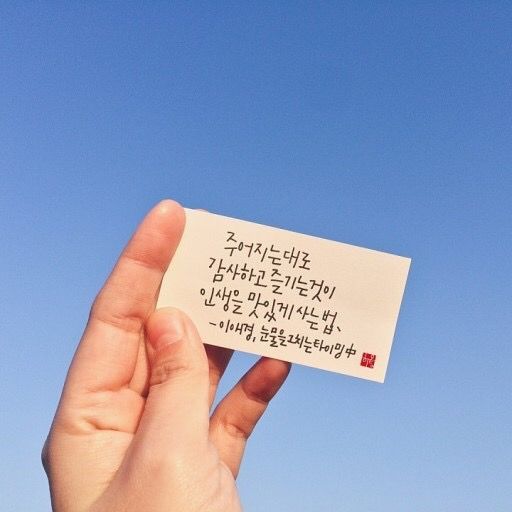 주어지는대로
감사하고 즐기는것이
인생을 맛있게 사는 법、
-이애경, 눈물을그치는타이밍 中